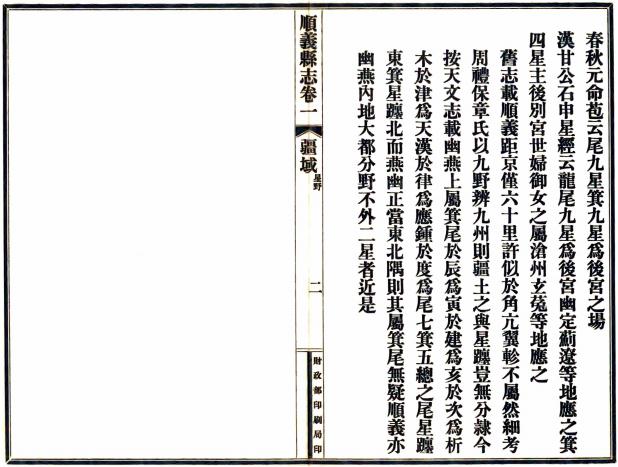 春秋元命苞云尾九星箕九星爲後宮之場
漢甘公石申星經云龍尾九星爲後宮幽定薊遼等地應之箕
四星主後別宮世婦御女之屬滄州玄菟等地應之
舊志載順義距京僅六十里許似於角亢翼軫不屬然細考
周禮保章氏以九野辨九州則疆土之與星躔豈無分隷今
按天文志載幽燕上屬箕尾於辰爲寅於建爲亥於次爲析
木於津爲天漢於律爲應鍾於度爲尾七箕五總之尾星躔
東箕星躔北而燕幽正當東北隅則其屬箕尾無疑順義亦
幽燕內地大都分野不外二星者近是
順義縣志卷一
疆域
星野
二
財政部印刷局印